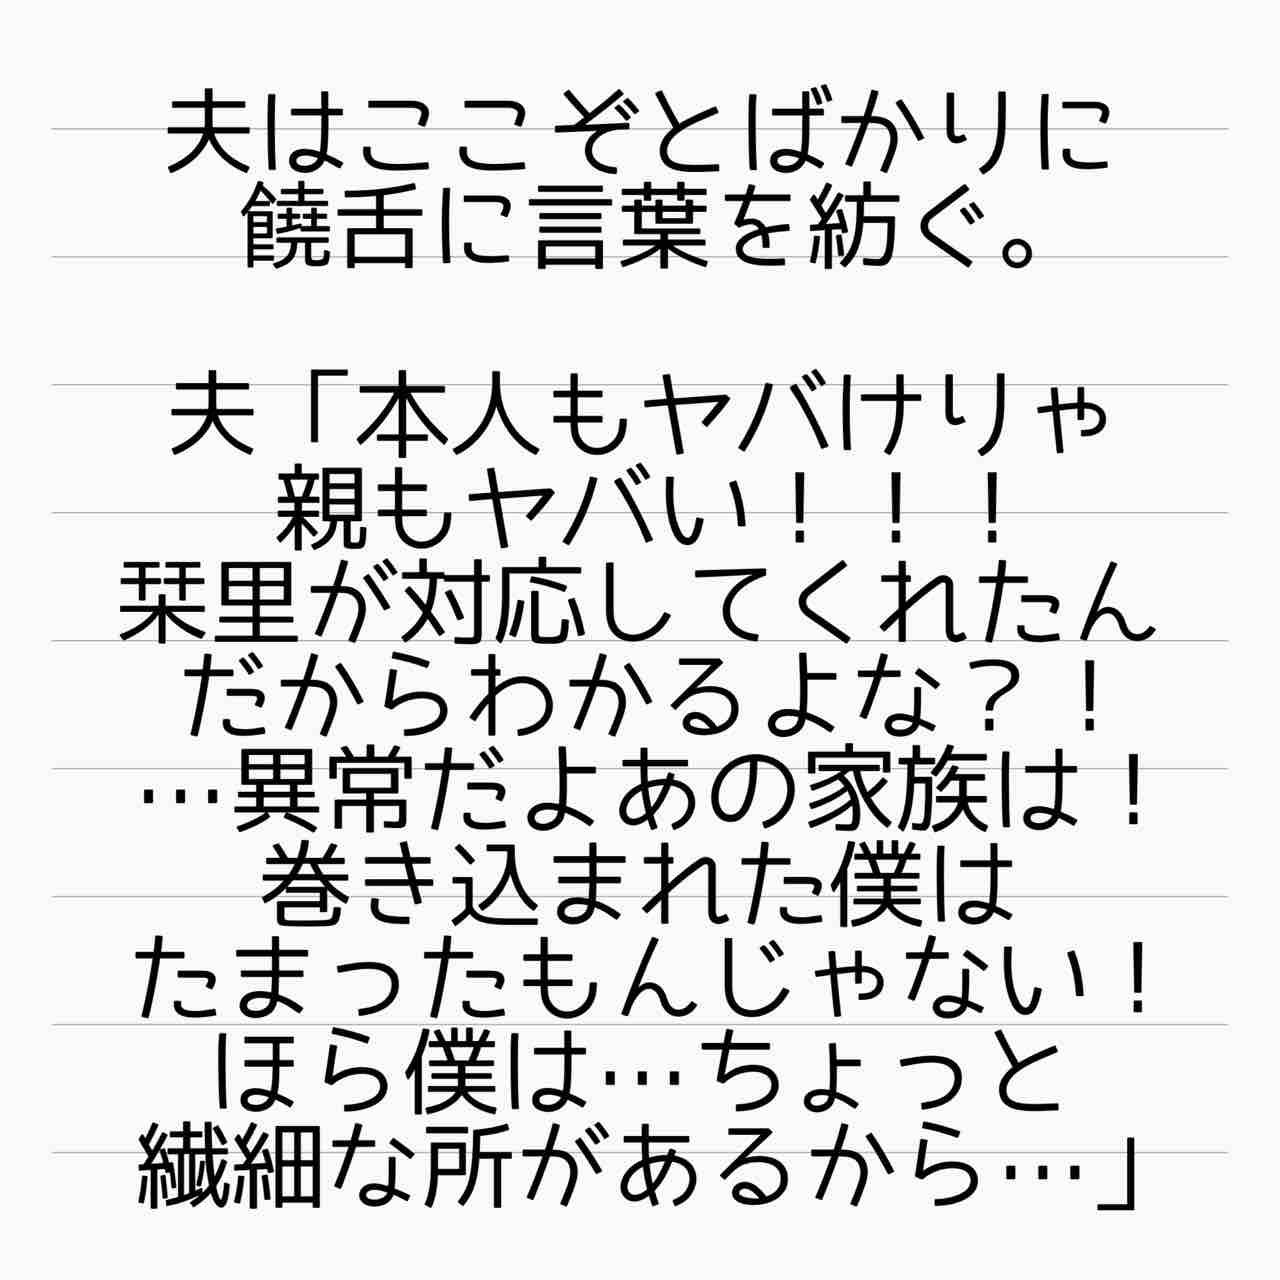 夫はここぞとばかりに
饒舌に言葉を紡ぐ。
夫「本人もヤバけりゃ
親もヤバい！！！
栞里が対応してくれたん
だからわかるよな？！
…異常だよあの家族は！
巻き込まれた僕は
たまったもんじゃない！
ほら僕は…ちょっと
繊細な所があるから…」